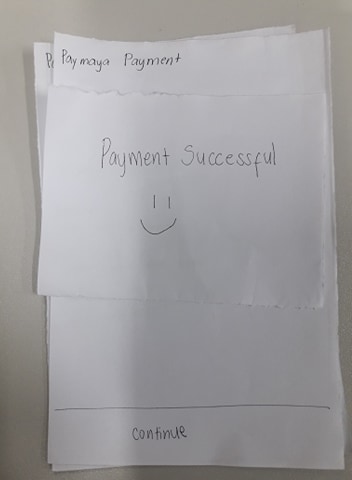 Paymaya Payment
Payment Successful
continue